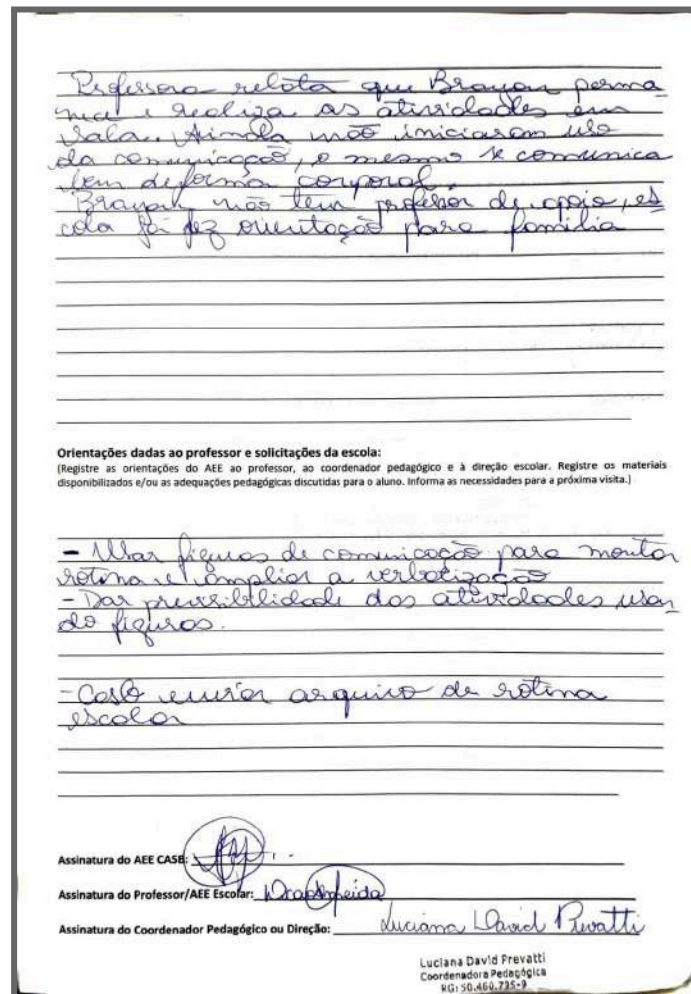 Professora relata que Brayan perma
nece e realiza as atividades em
sala. Ainda não iniciaram uso
da comunicação, o mesmo se comunica
bem de forma corporal.
Brayan não tem professor de apoio, es
cola já fez orientação para família
Orientações dadas ao professor e solicitações da escola:
(Registre as orientações do AEE ao professor, ao coordenador pedagógico e à direção escolar. Registre os materiais
disponibilizados e/ou as adequações pedagógicas discutidas para o aluno. Informa as necessidades para a próxima visita.)
- Usar figuras de comunicação para montar
rotina e ampliar a verbalização
- Dar previsibilidade das atividades usan
do figuras.
- Casb enviar arquivo de rotina
escolar
Assinatura do AEE CASB:
Assinatura do Professor/AEE Escolar:
Assinatura do Coordenador Pedagógico ou Direção: Luciana David Prevatti
Luciana David Prevatti
Coordenadora Pedagógica
RG: 50.460.735-9